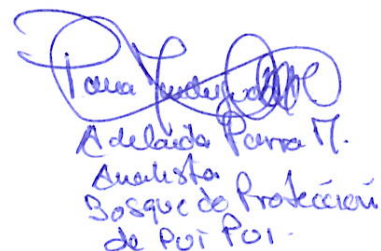 Adelaida Parra M.
Analista
Bosque de Protección
de Pui Pui.